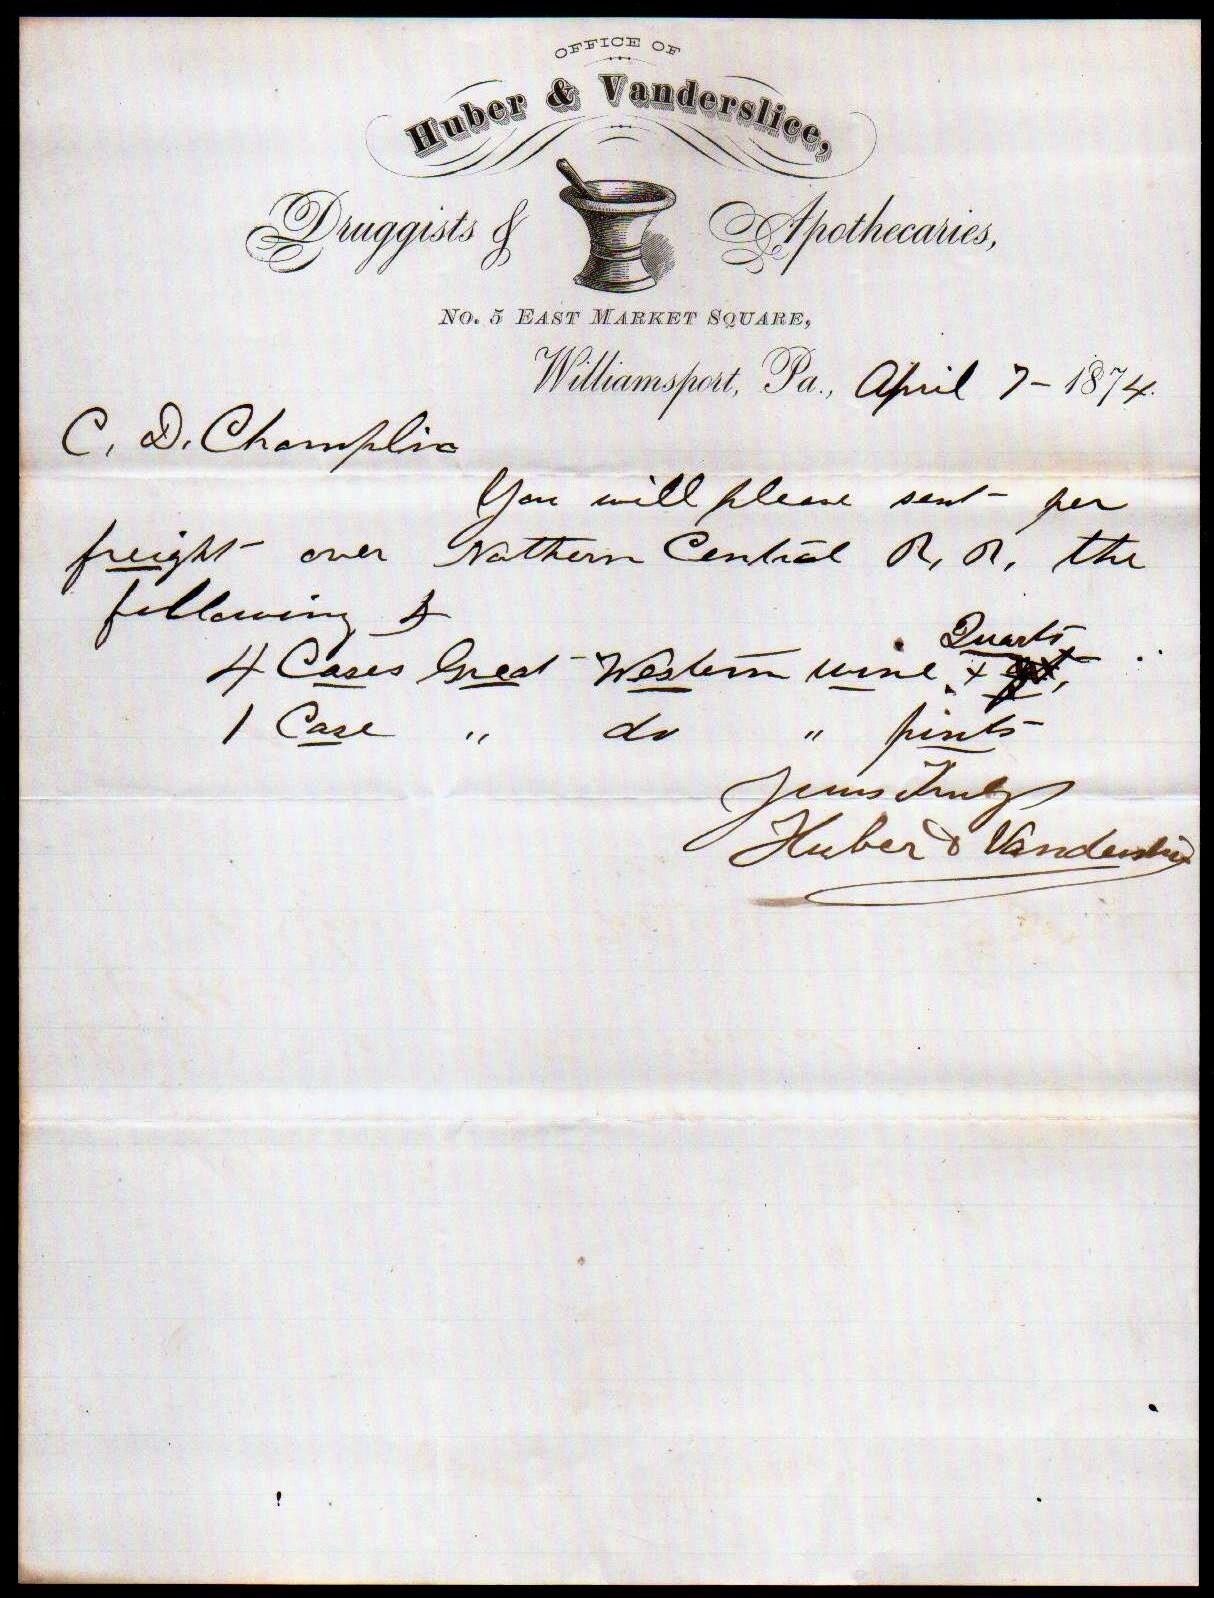 OFFICE OF
Huber & Vanderslice,
Druggists & Apothecaries,
No. 5 EAST MARKET SQUARE,
Williamsport, Pa., April 7 - 1874.
C. D. Champlin
You will please sent per
freight over Nothern Central R. R. the
following
Quarts
4 Cases Great Western wine
1 Case " do " pints
Yours Truly
Huber & Vanderslice